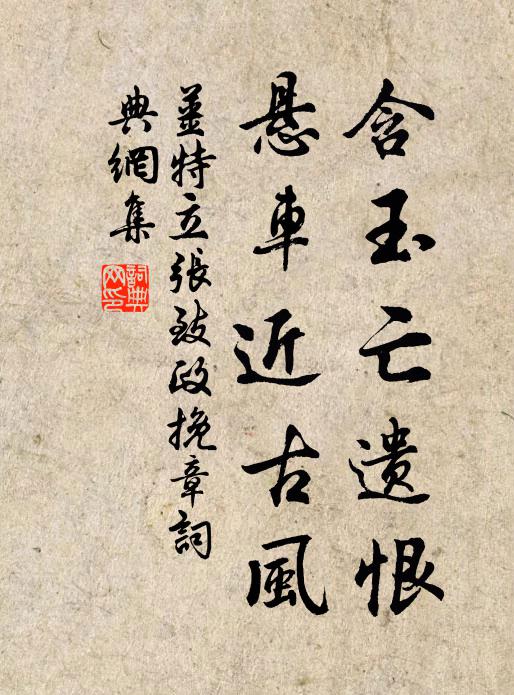 含玉亡遗恨
悬車近古風
姜特立張致政挽章詞
典網集
詞典
网印